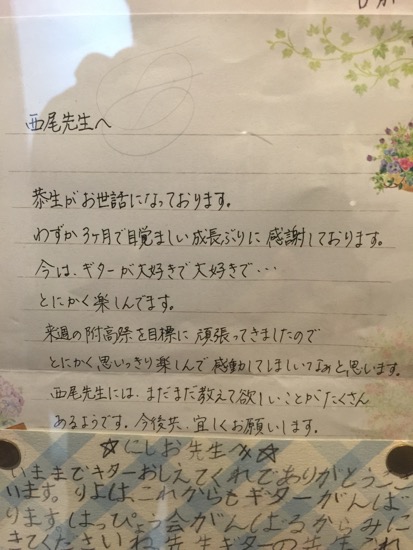 西尾先生へ
恭生がお世話になっております。
わずか3ヶ月で目覚ましい成長ぶりに感謝しております。
今は、ギターが大好きで大好きで・・・
とにかく楽しんでます。
来週の附高祭を目標に頑張ってきましたので
とにかく、思いっきり楽しんで感動してほしいてなぁと思います。
西尾先生には、まだまだ教えて欲しいことがたくさん
あるようです。今後共、宜しくお願いします。
☆にしお先生へ☆
いままでギターおしえてくれてありがとうござ
います。りよは、これからもギターがんば
ります。はっぴょう会がんばるからみに
きてくださいね。先生ギターの先生